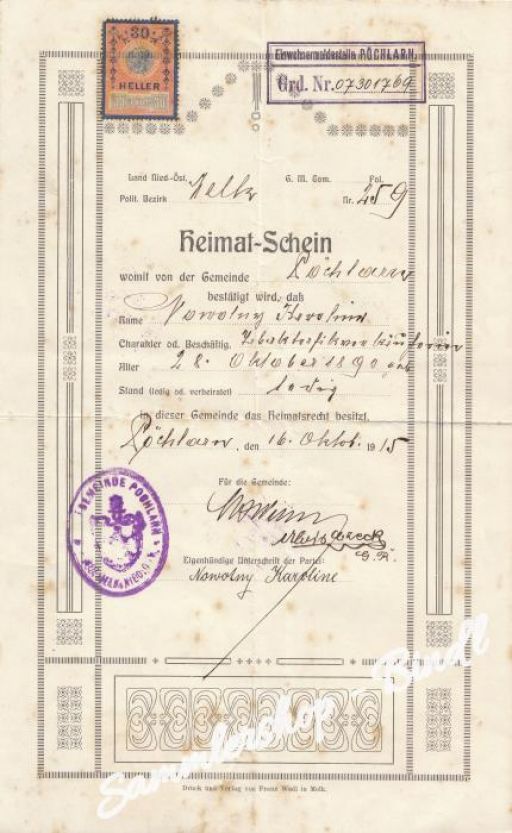 30
HELLER
Einwohnermeldestelle PÖCHLARN
Ord. Nr. 07301769
Land Nied-Öst. G. M. Com. Fol.
Polit. Bezirk Melk Nr. 259
Heimat-Schein
womit von der Gemeinde Pöchlarn
bestätigt wird, daß
Name Nowotny Karoline
Charakter od. Beschäftig.
Alter 28. Oktober 1890 geb
Stand (ledig od. verheiratet) ledig
in dieser Gemeinde das Heimatsrecht besitzt.
Pöchlarn, den 16. Oktob. 1915
Für die Gemeinde:
GEMEINDE PÖCHLARN
G. R.
Eigenhändige Unterschrift der Partei:
Nowotny Karoline
Sammlershop - Bindl
Druck und Verlag von Franz Wedl in Melk.